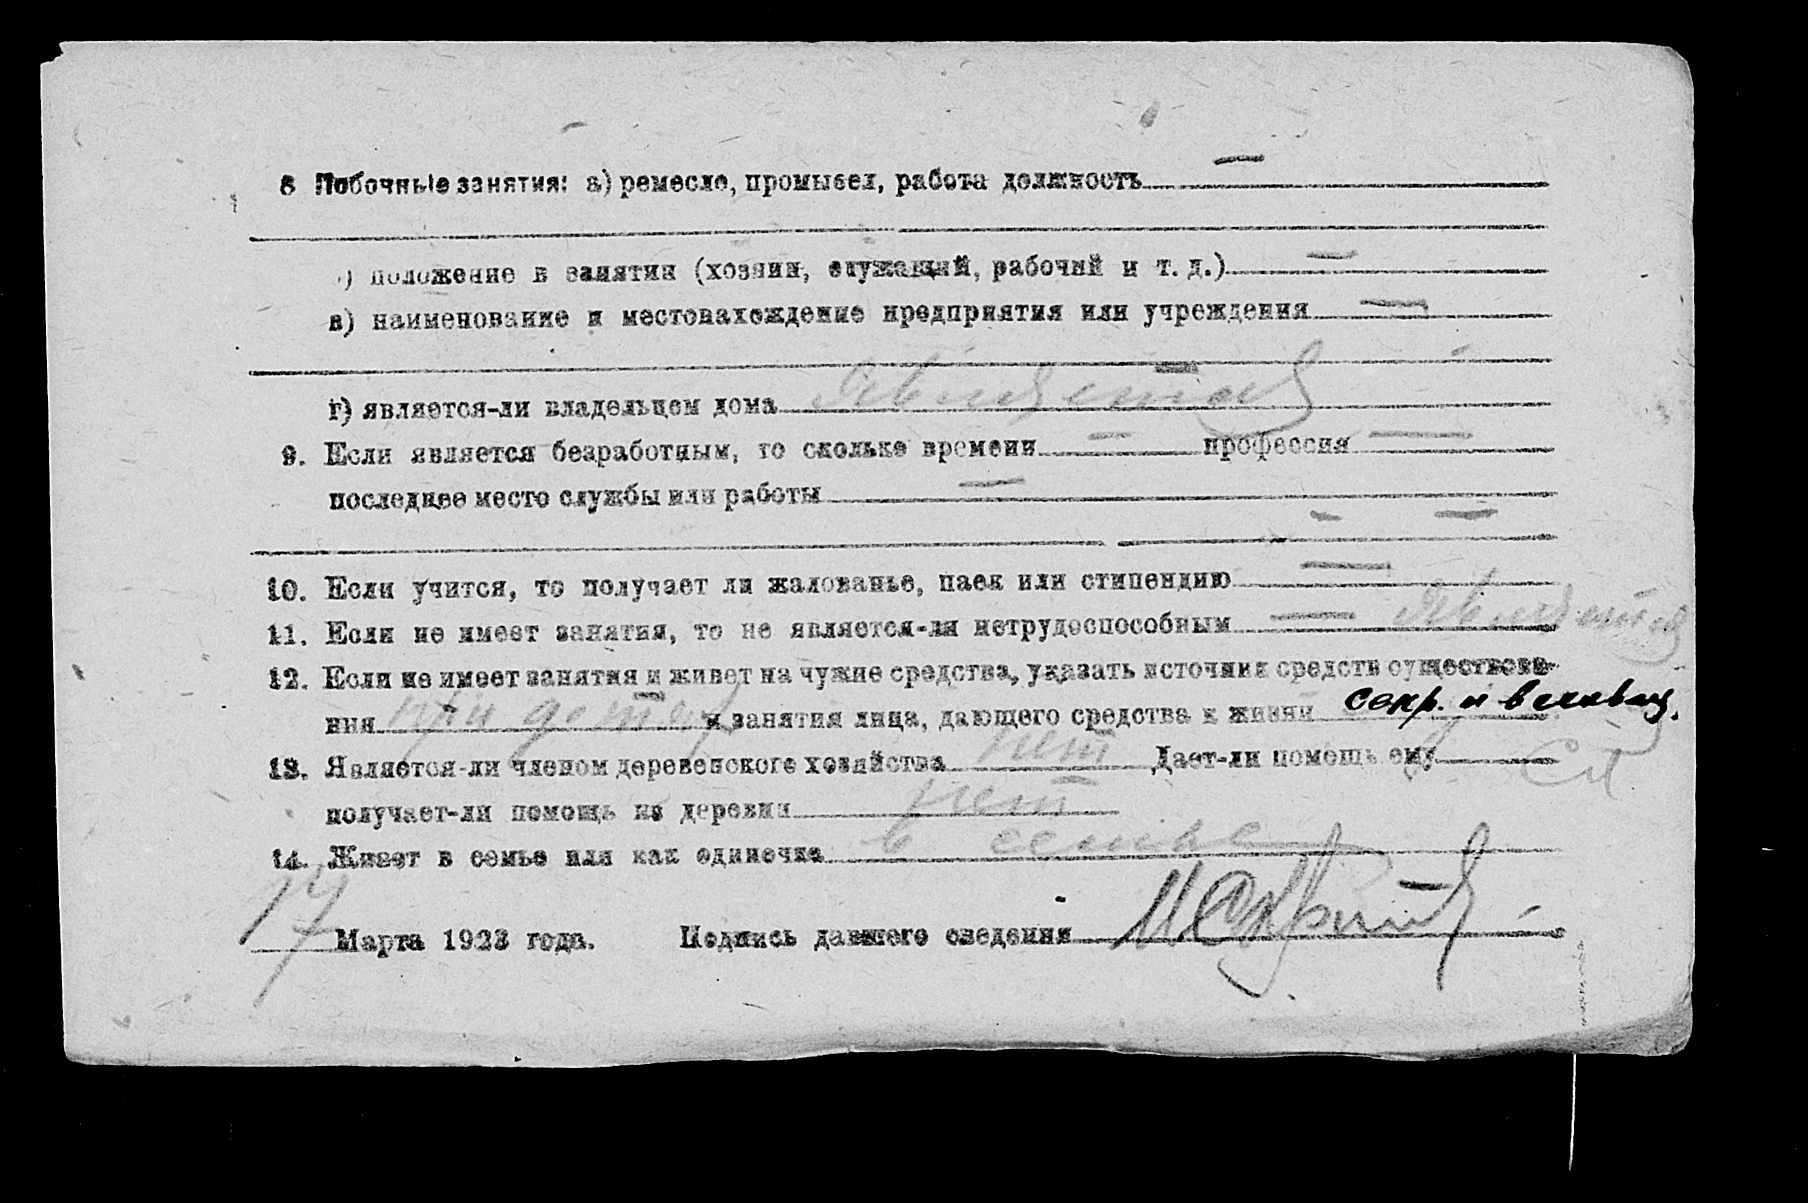 8 Побочные занятия: а) ремесло, промысел, работа должность —
б) положение в занятии (хозяин, служащий, рабочий и т. д.) —
в) наименование и местонахождение предприятия или учреждения —
—
г) является-ли владельцем дома является
9. Если является безработным, то сколько времени — профессия —
последнее место службы или работы —
— —
10. Если учится, то получает ли жалованье, паек или стипендию —
11. Если не имеет занятия, то не является-ли нетрудоспособным — является
12. Если не имеет занятия и живет на чужие средства, указать источник средств существова-
ния при детях и занятия лица, дающего средства к жизни
13. Является-ли членом деревенского хозяйства нет Дает-ли помощь ему
получает-ли помощь из деревни нет
14. Живет в семье или как одиночка в семье
17 Марта 1923 года. Подпись давшего сведения